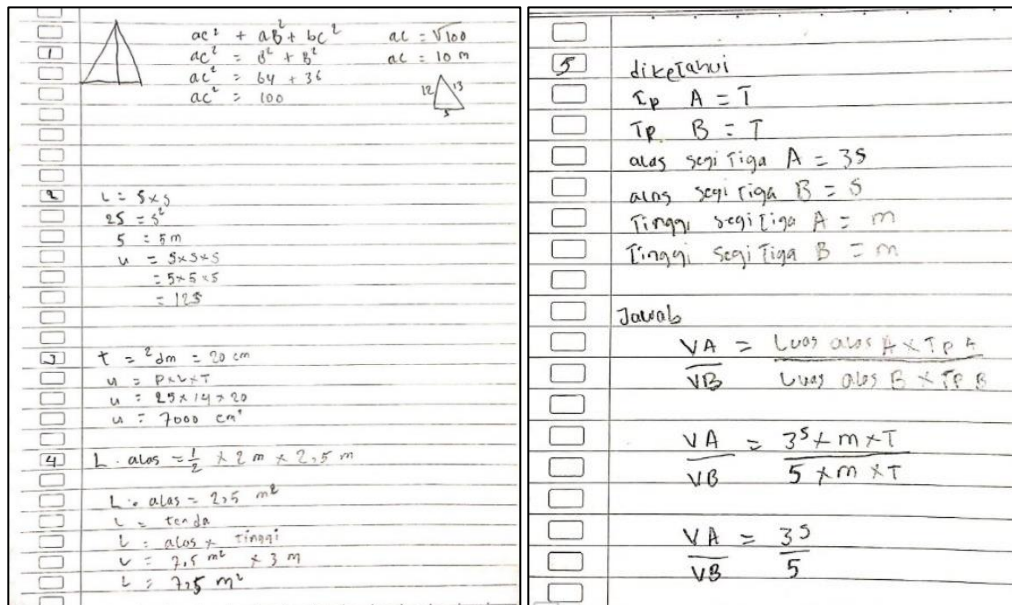 1
ac² + aB² + bc²
ac² = 8² + 8²
ac² = 64 + 36
ac² = 100
ac = √100
ac = 10 m
12 13
5
2
L = 5 x 5
25 = s²
5 = 5 m
u = 5x5x5
= 5x5x5
= 125
3
t = ²dm = 20 cm
u = PxLxT
u = 25 x 14 x 20
u = 7000 cm³
4
L. alas = 1/2 x 2 m x 2,5 m
L. alas = 2,5 m²
L = tenda
L = alas x Tinggi
v = 2,5 m² x 3 m
L = 7,5 m²
5
diketahui
Tp A = T
Tp B = T
alas segi Tiga A = 3s
alas segi Tiga B = s
Tinggi segi Tiga A = m
Tinggi segi Tiga B = m
Jawab
VA/VB = Luas alas A x Tp A / Luas alas B x Tp B
VA/VB = 3s x m x T / s x m x T
VA/VB = 3s/s